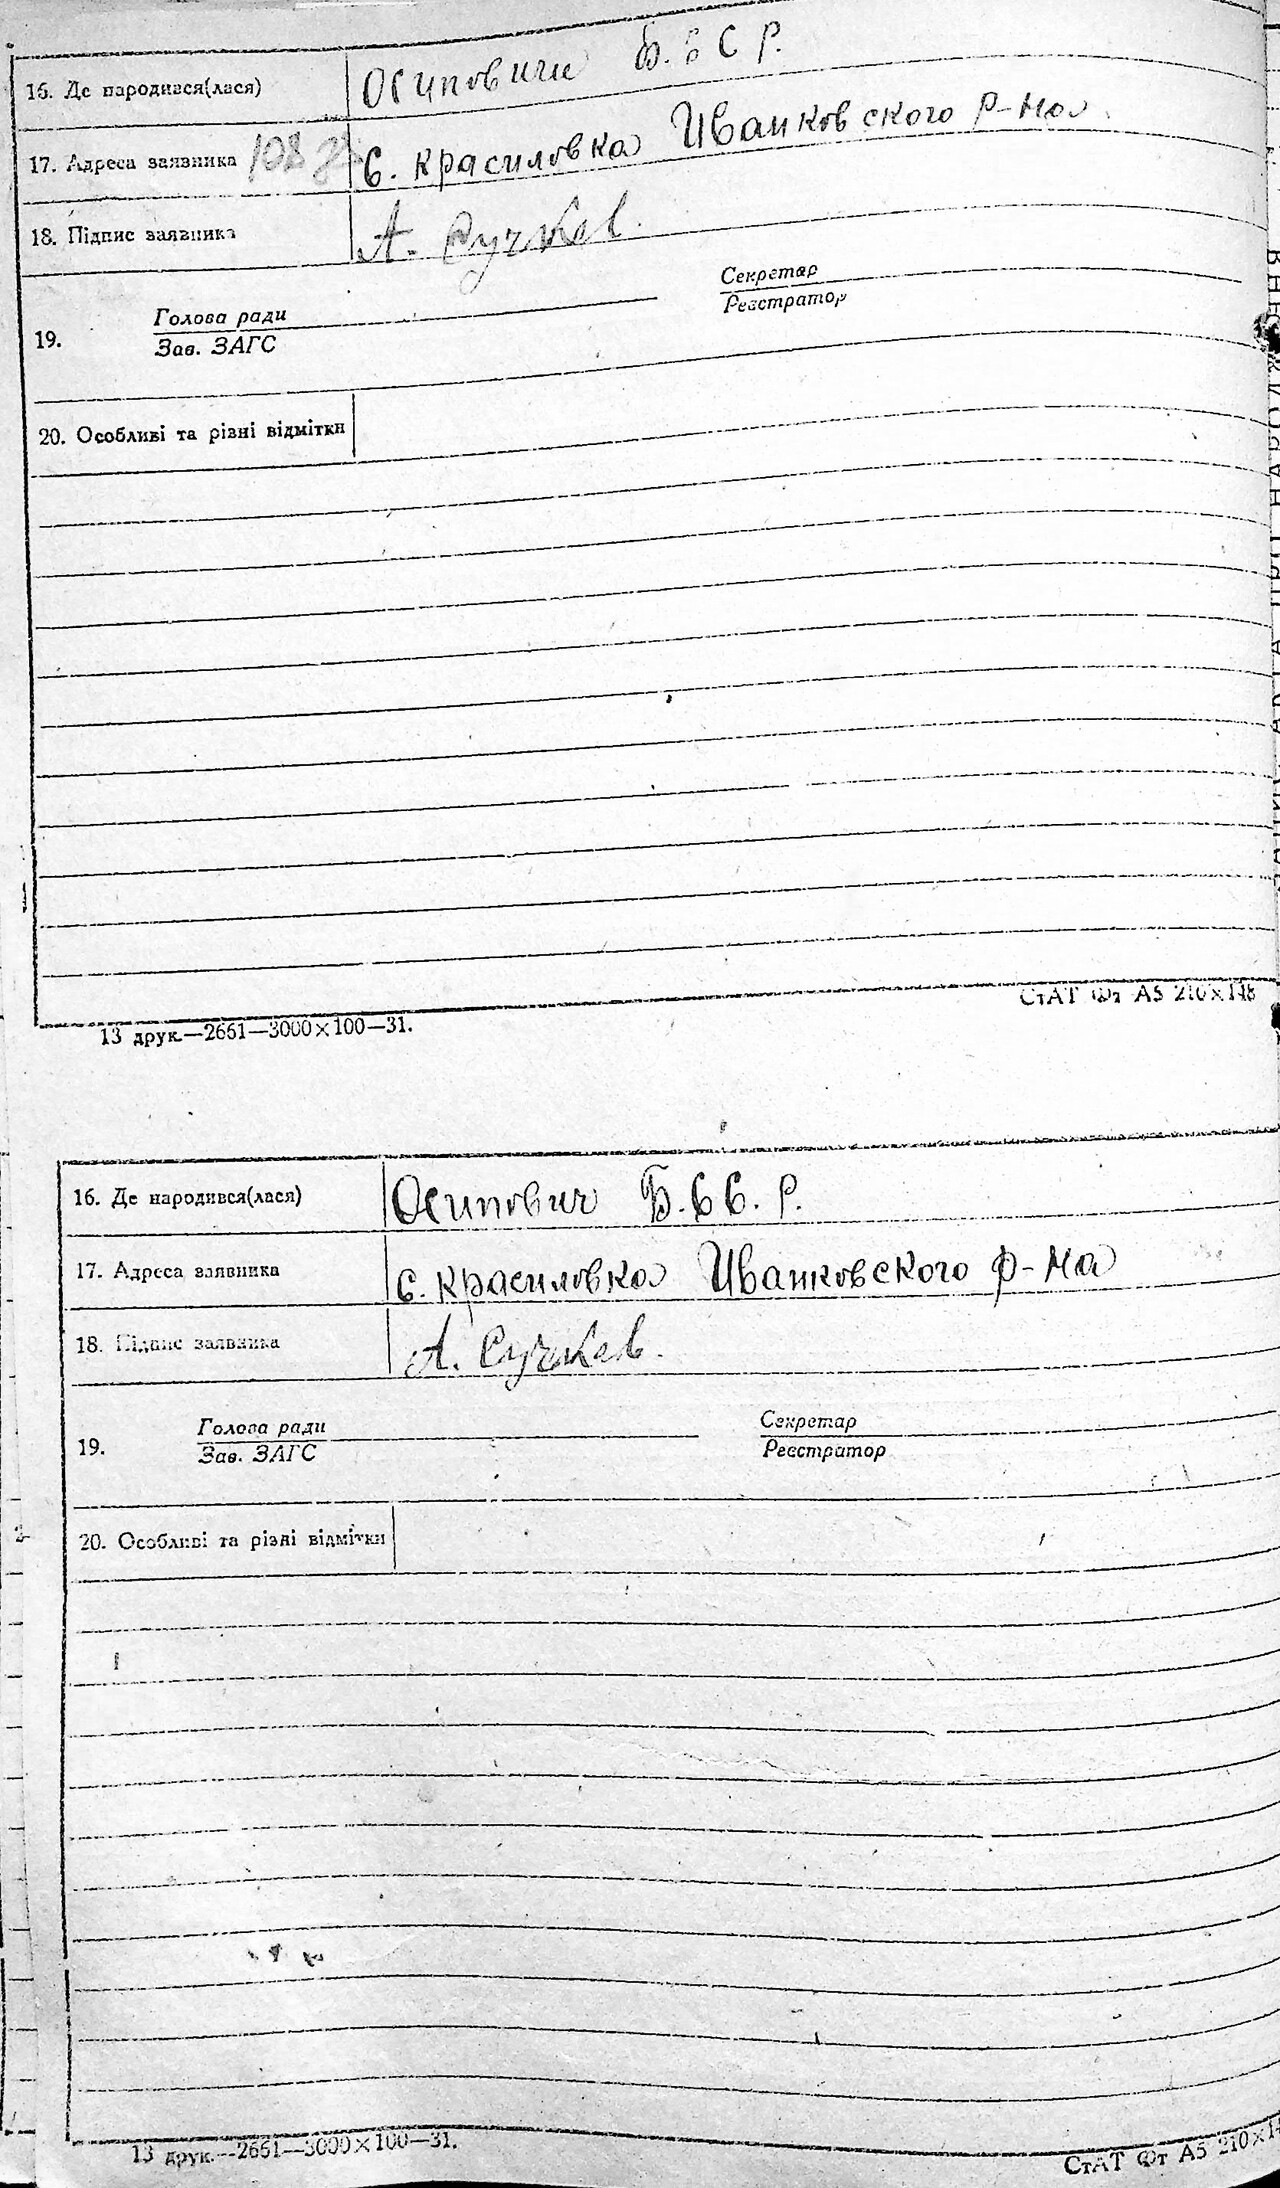 16. Де народився(лася) Осиповичи Б.ССР.
17. Адреса заявника 108 с. Красиловка Иванковского Р-на
18. Підпис заявника А. Сучков.
Голова ради Секретар
19. Зав. ЗАГС Реєстратор
20. Особливі та різні відмітки
СтАТ Фт А5 210×148
13 друк.—2661—3000×100—31.
16. Де народився(лася) Осипович Б.СС.Р.
17. Адреса заявника с. Красиловка Иванковского Р-на
18. Підпис заявника А. Сучков.
Голова ради Секретар
19. Зав. ЗАГС Реєстратор
20. Особливі та різні відмітки
13 друк.—2661—3000×100—31.
СтАТ Фт А5 210×14